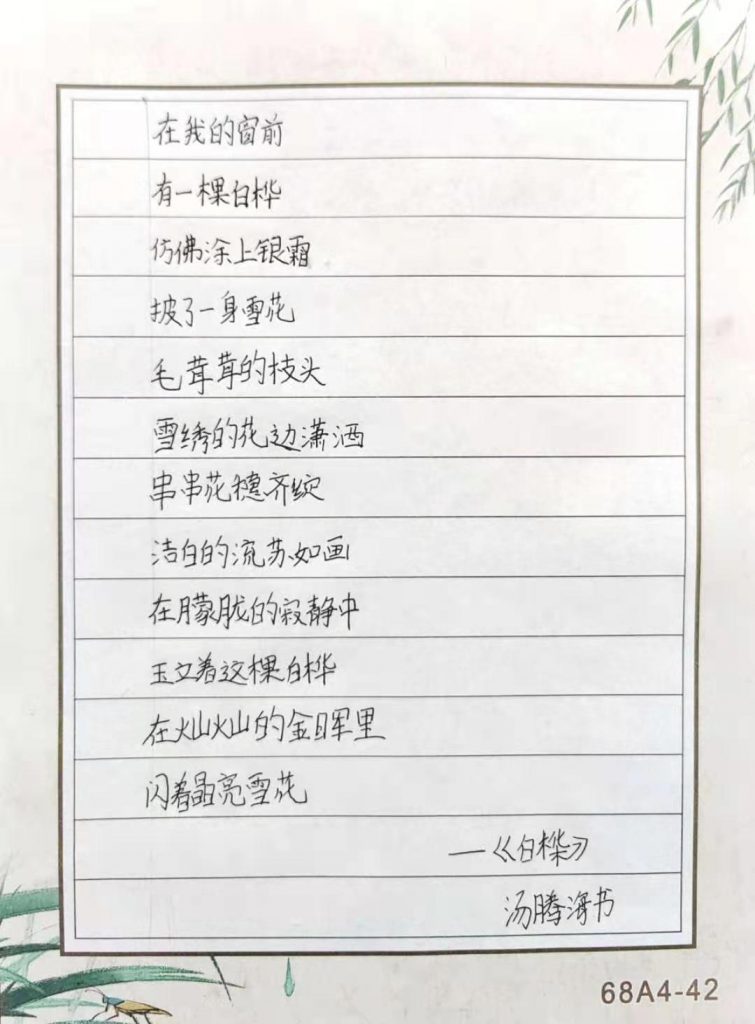 在我的窗前
有一棵白桦
仿佛涂上银霜
披了一身雪花
毛茸茸的枝头
雪绣的花边潇洒
串串花穗齐绽
洁白的流苏如画
在朦胧的寂静中
玉立着这棵白桦
在灿灿的金晖里
闪着晶亮雪花
—《白桦》
汤腾海书
68A4-42